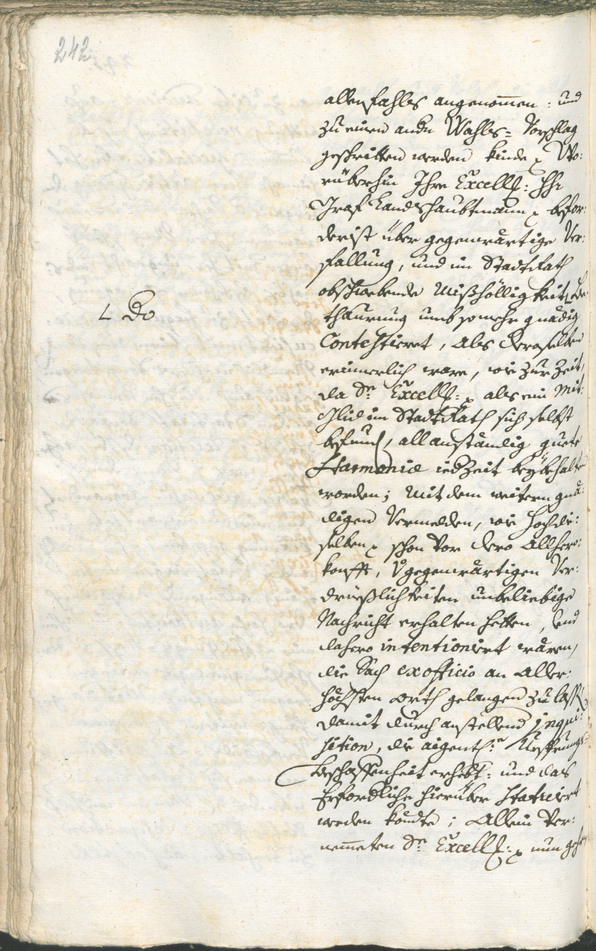 242
allenfahls angenommen: und
zu einen andn Wahls= Vorschlag
geschritten werden kinde
rüberhin Ihro Excell: H:
Graf Landshaubtmann befor=
derist über gegenwärtige Ver=
fallung, und im StadtRath
obschwebende Mißhölligkeit
umb so mehr gnädig
Contestieret, als deroselben
erinnerlich wäre, wie zur Zeit,
da Sr Excell: als ein Mit=
Glid im StadtRath sich selbst
befund, all anständig guete
Harmonie iedZeit beybehalten
L Do
worden; mit dem weitern gnä=
digen Vermelden, wie Hochdie=
selben schon vor dero Allhero=
konfft, gegenwärtigen Ver=
drießlichkeiten unbeliebige
Nachricht erhalten hetten, und
dahero intentioniert wären,
die Sach ex officio an Aller=
höchsten orth gelangen zu lassen
damit durch anstellend Inqui=
sition, die aigentl:
beschaffenheit erhebt: und das
Erfordliche hierüber Statuiert
werden kündte; Allein ver=
nemmeten Sr Excell: nun